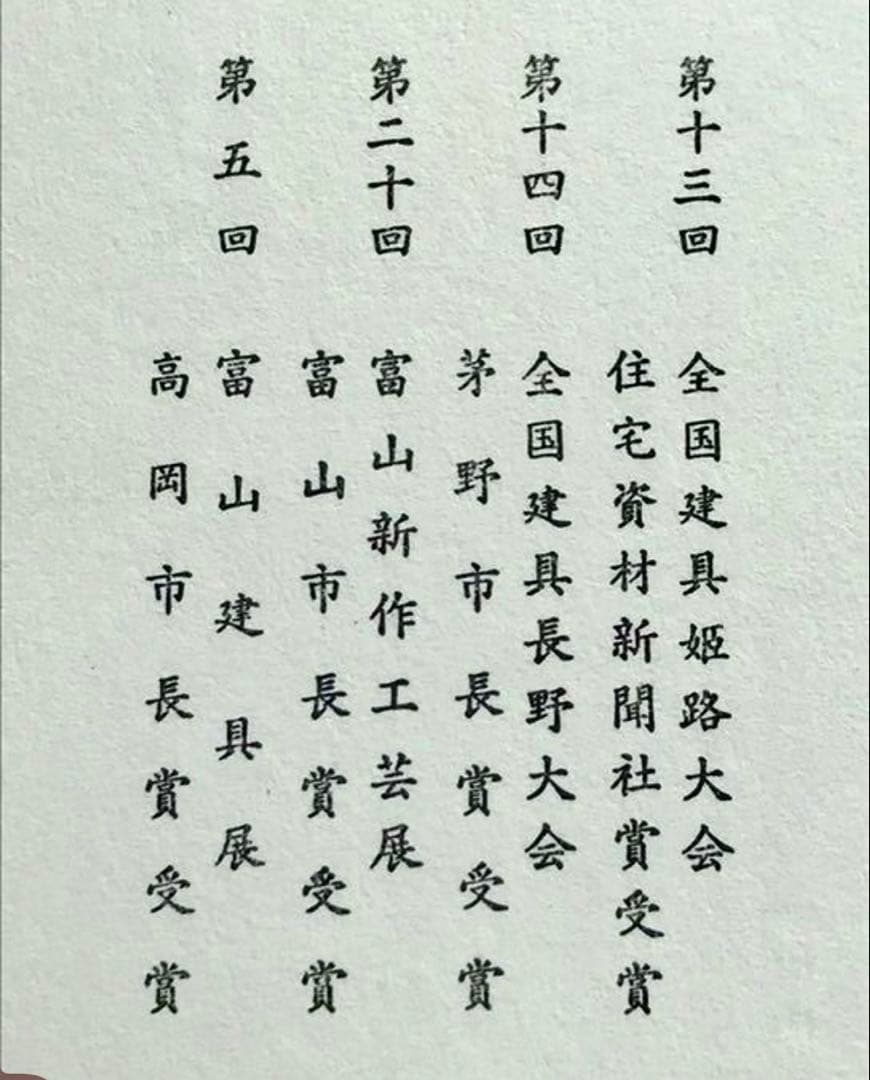 第十三回 全国建具姫路大会
住宅資材新聞社賞受賞
第十四回 全国建具長野大会
茅野市長賞受賞
第二十回 富山新作工芸展
富山市長賞受賞
第五回 富山建具展
高岡市長賞受賞